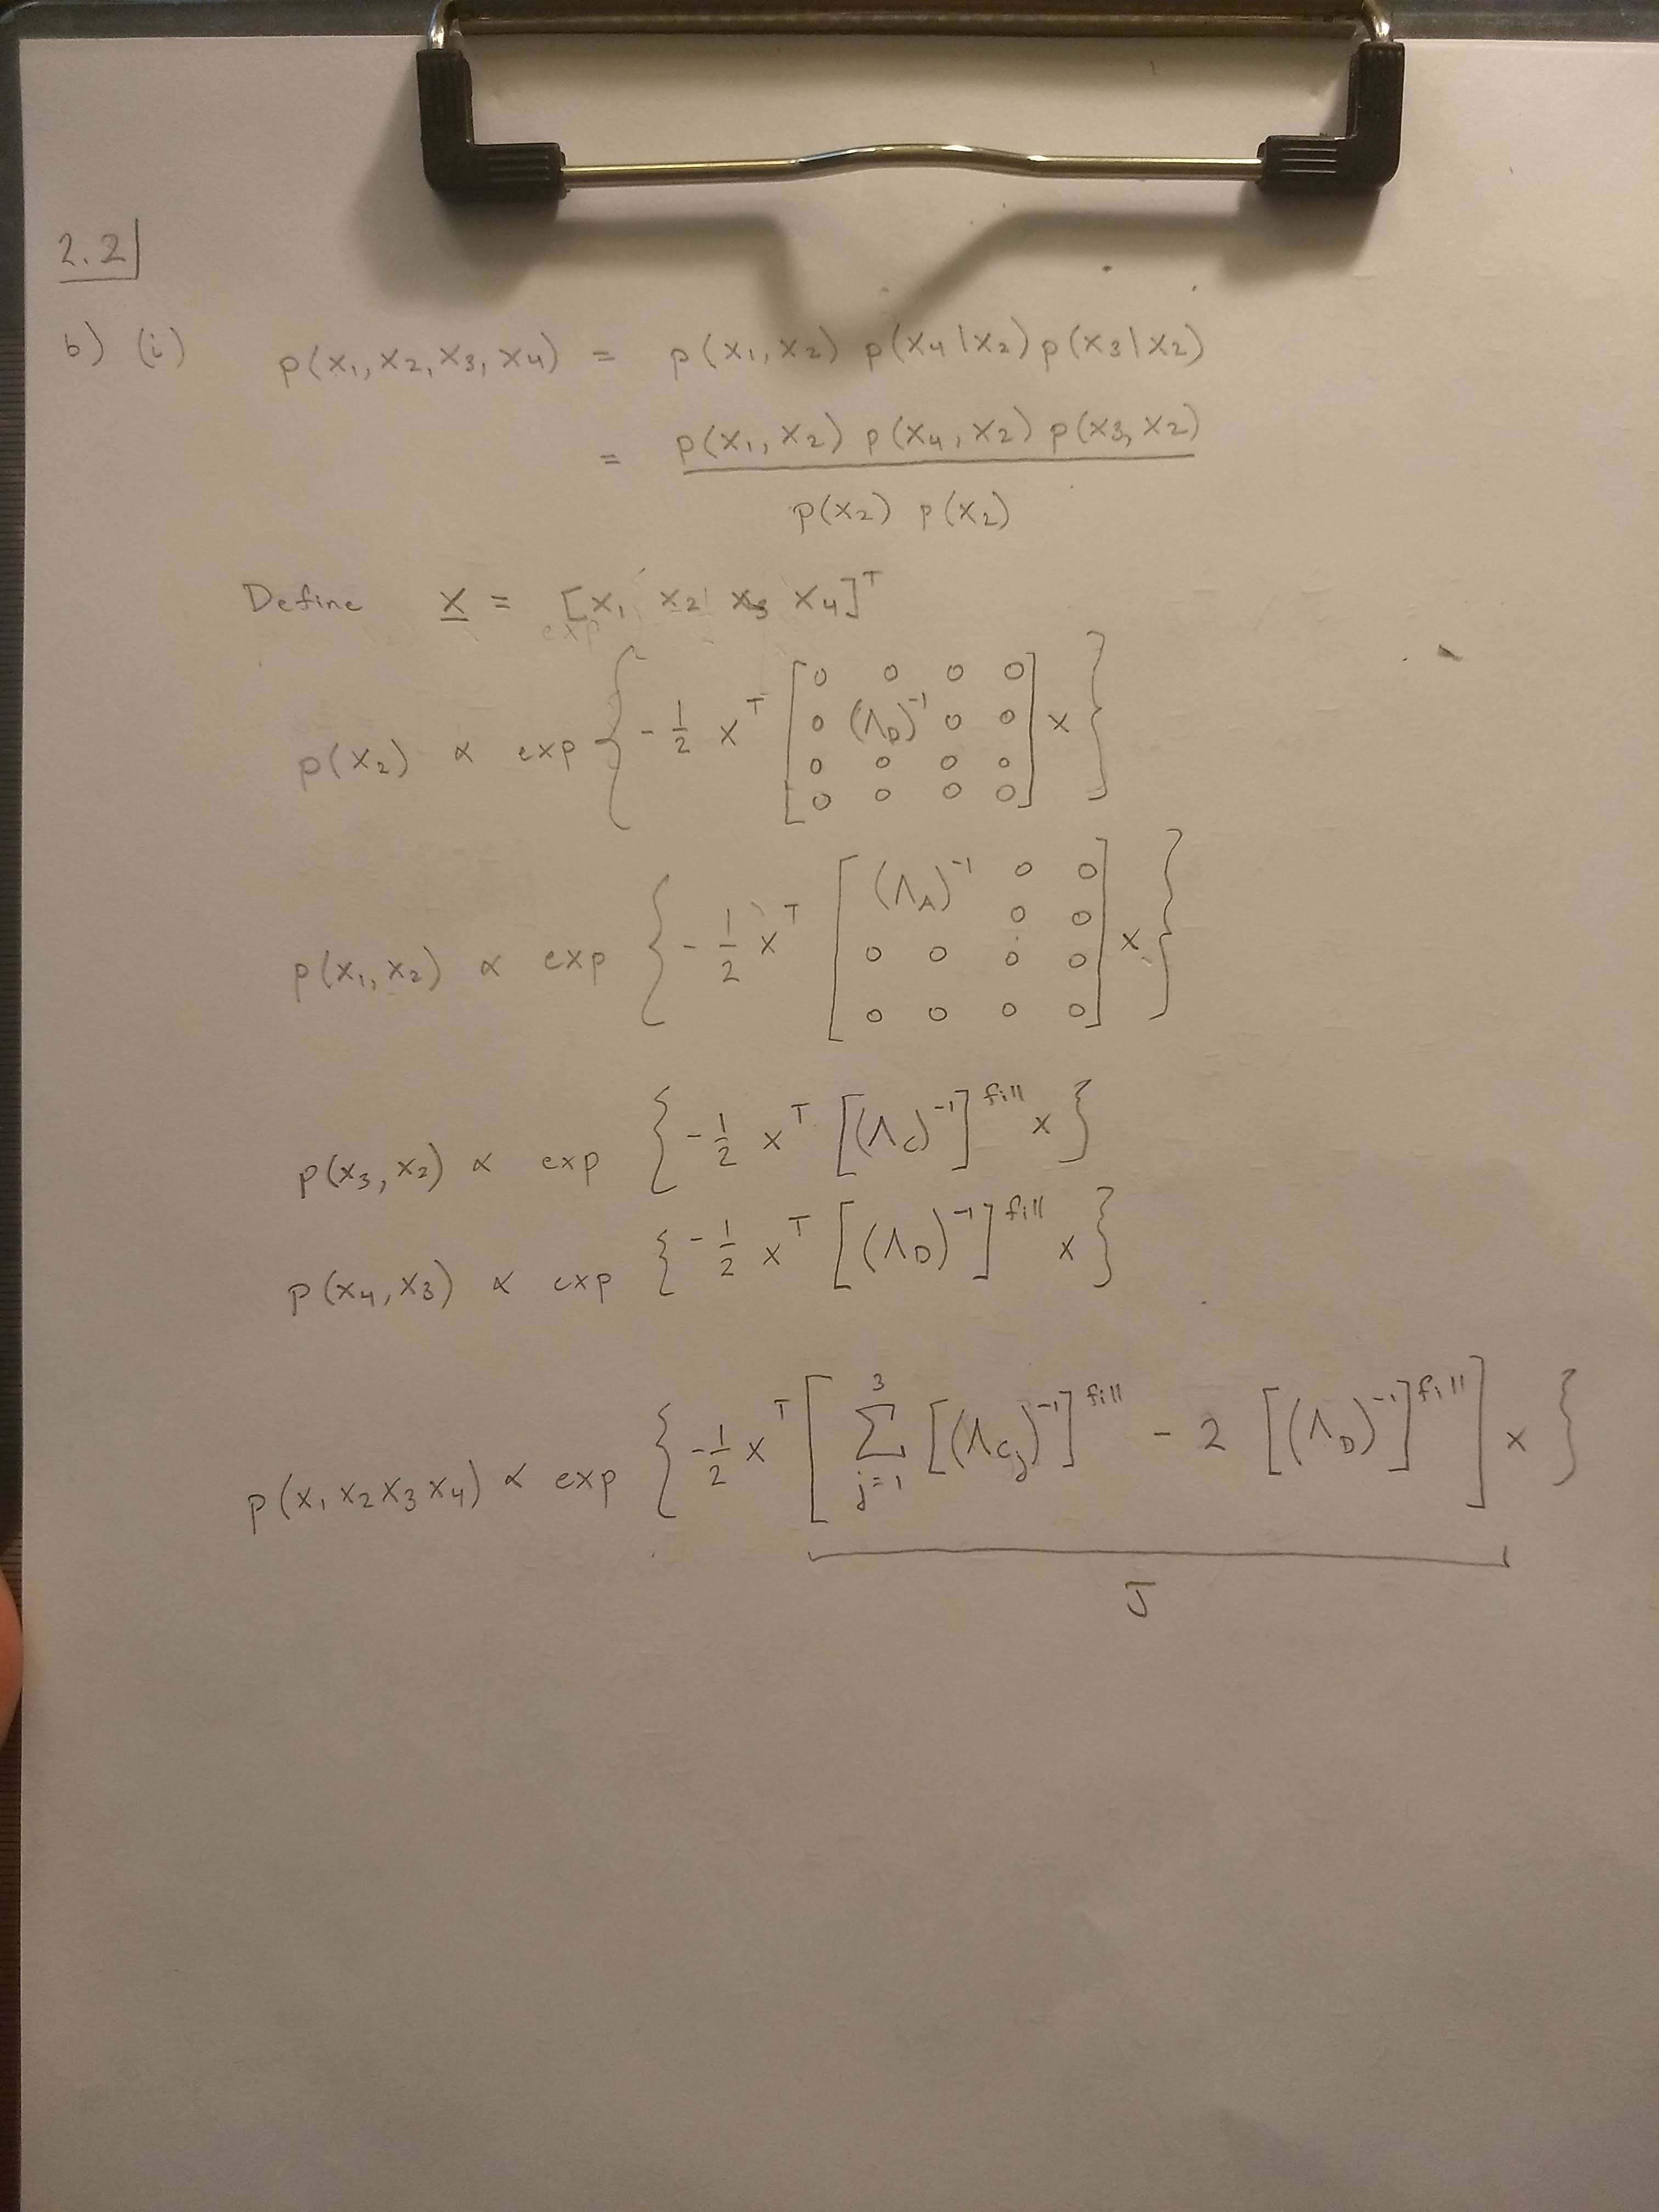 2.2
b) (i) p(x₁, x₂, x₃, x₄) = p(x₁, x₂) p(x₄|x₂) p(x₃|x₂)
= p(x₁, x₂) p(x₄, x₂) p(x₃, x₂)
p(x₂) p(x₂)
Define x = [x₁ x₂ x₃ x₄]ᵀ
exp
p(x₂) ∝ exp { -1/2 xᵀ [ 0 0 0 0
0 (Λ_D)⁻¹ 0 0
0 0 0 0
0 0 0 0 ] x }
p(x₁, x₂) ∝ exp { -1/2 xᵀ [ (Λ_A)⁻¹ 0 0
0 0
0 0 0 0
0 0 0 0 ] x }
p(x₃, x₂) ∝ exp { -1/2 xᵀ [(Λ_C)⁻¹]^fill x }
p(x₄, x₃) ∝ exp { -1/2 xᵀ [(Λ_D)⁻¹]^fill x }
p(x₁ x₂ x₃ x₄) ∝ exp { -1/2 xᵀ [ Σ_{j=1}^{3} [(Λ_{C_j})⁻¹]^fill - 2 [(Λ_D)⁻¹]^fill ] x }
J